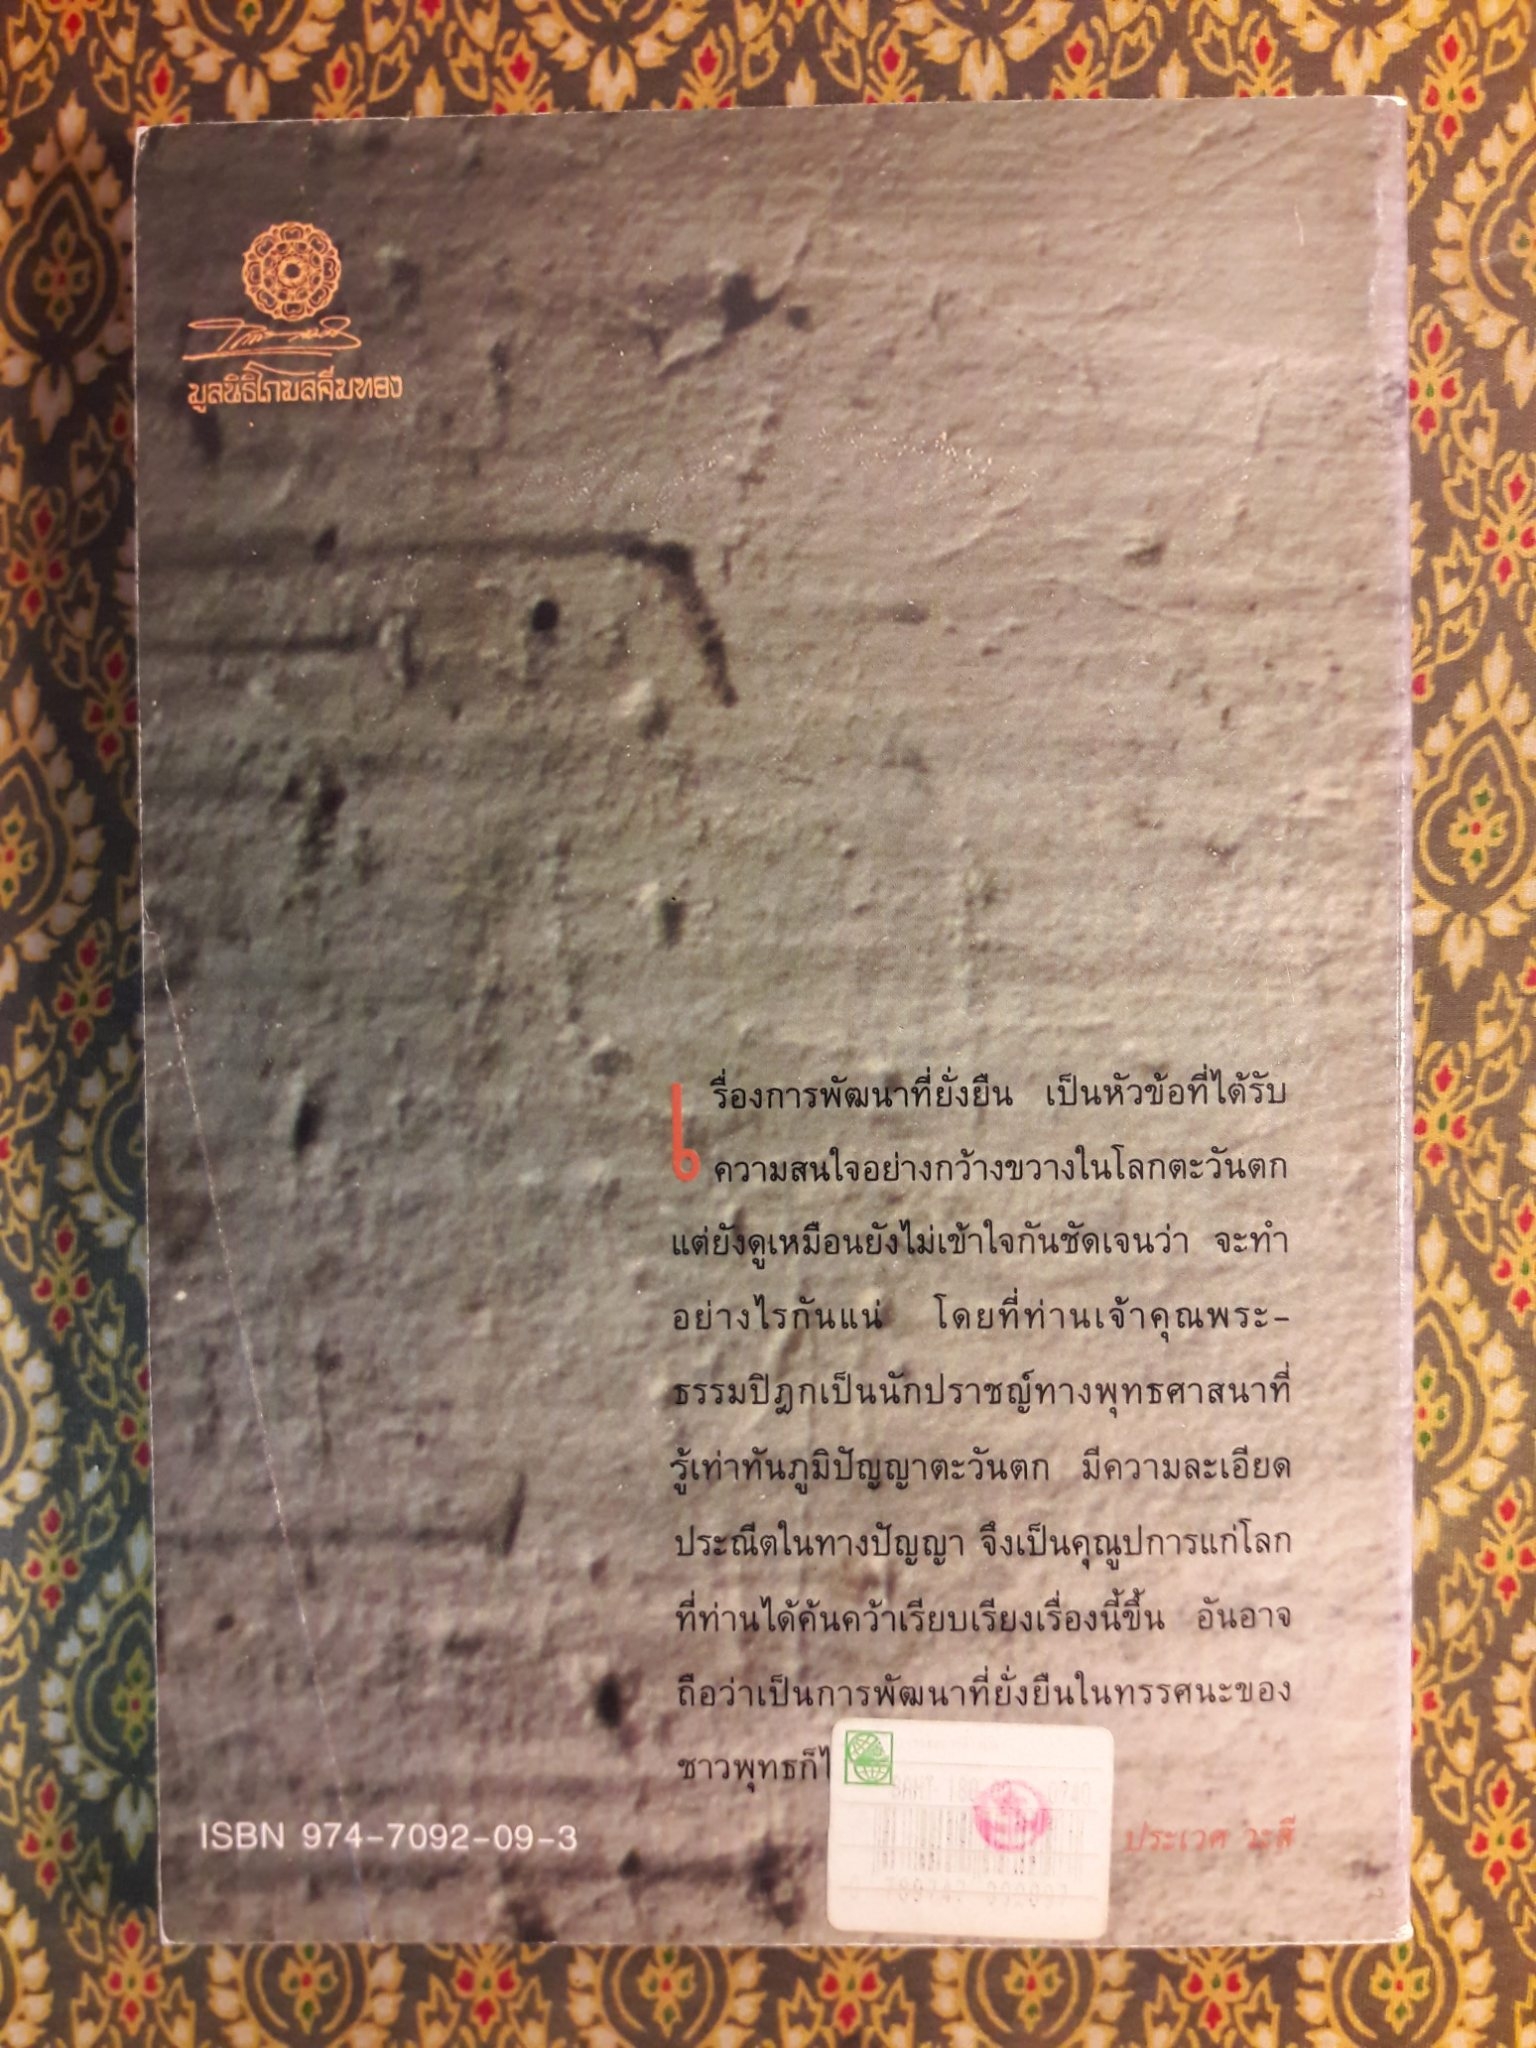 มูลนิธิโกมลคีมทอง
เรื่องการพัฒนาที่ยั่งยืน เป็นหัวข้อที่ได้รับ
ความสนใจอย่างกว้างขวางในโลกตะวันตก
แต่ยังดูเหมือนยังไม่เข้าใจกันชัดเจนว่า จะทำ
อย่างไรกันแน่ โดยที่ท่านเจ้าคุณพระ-
ธรรมปิฎกเป็นนักปราชญ์ทางพุทธศาสนาที่
รู้เท่าทันภูมิปัญญาตะวันตก มีความละเอียด
ประณีตในทางปัญญา จึงเป็นคุณูปการแก่โลก
ที่ท่านได้ค้นคว้าเรียบเรียงเรื่องนี้ขึ้น อันอาจ
ถือว่าเป็นการพัฒนาที่ยั่งยืนในทรรศนะของ
ชาวพุทธก็
ประเวศ วะสี
ISBN 974-7092-09-3